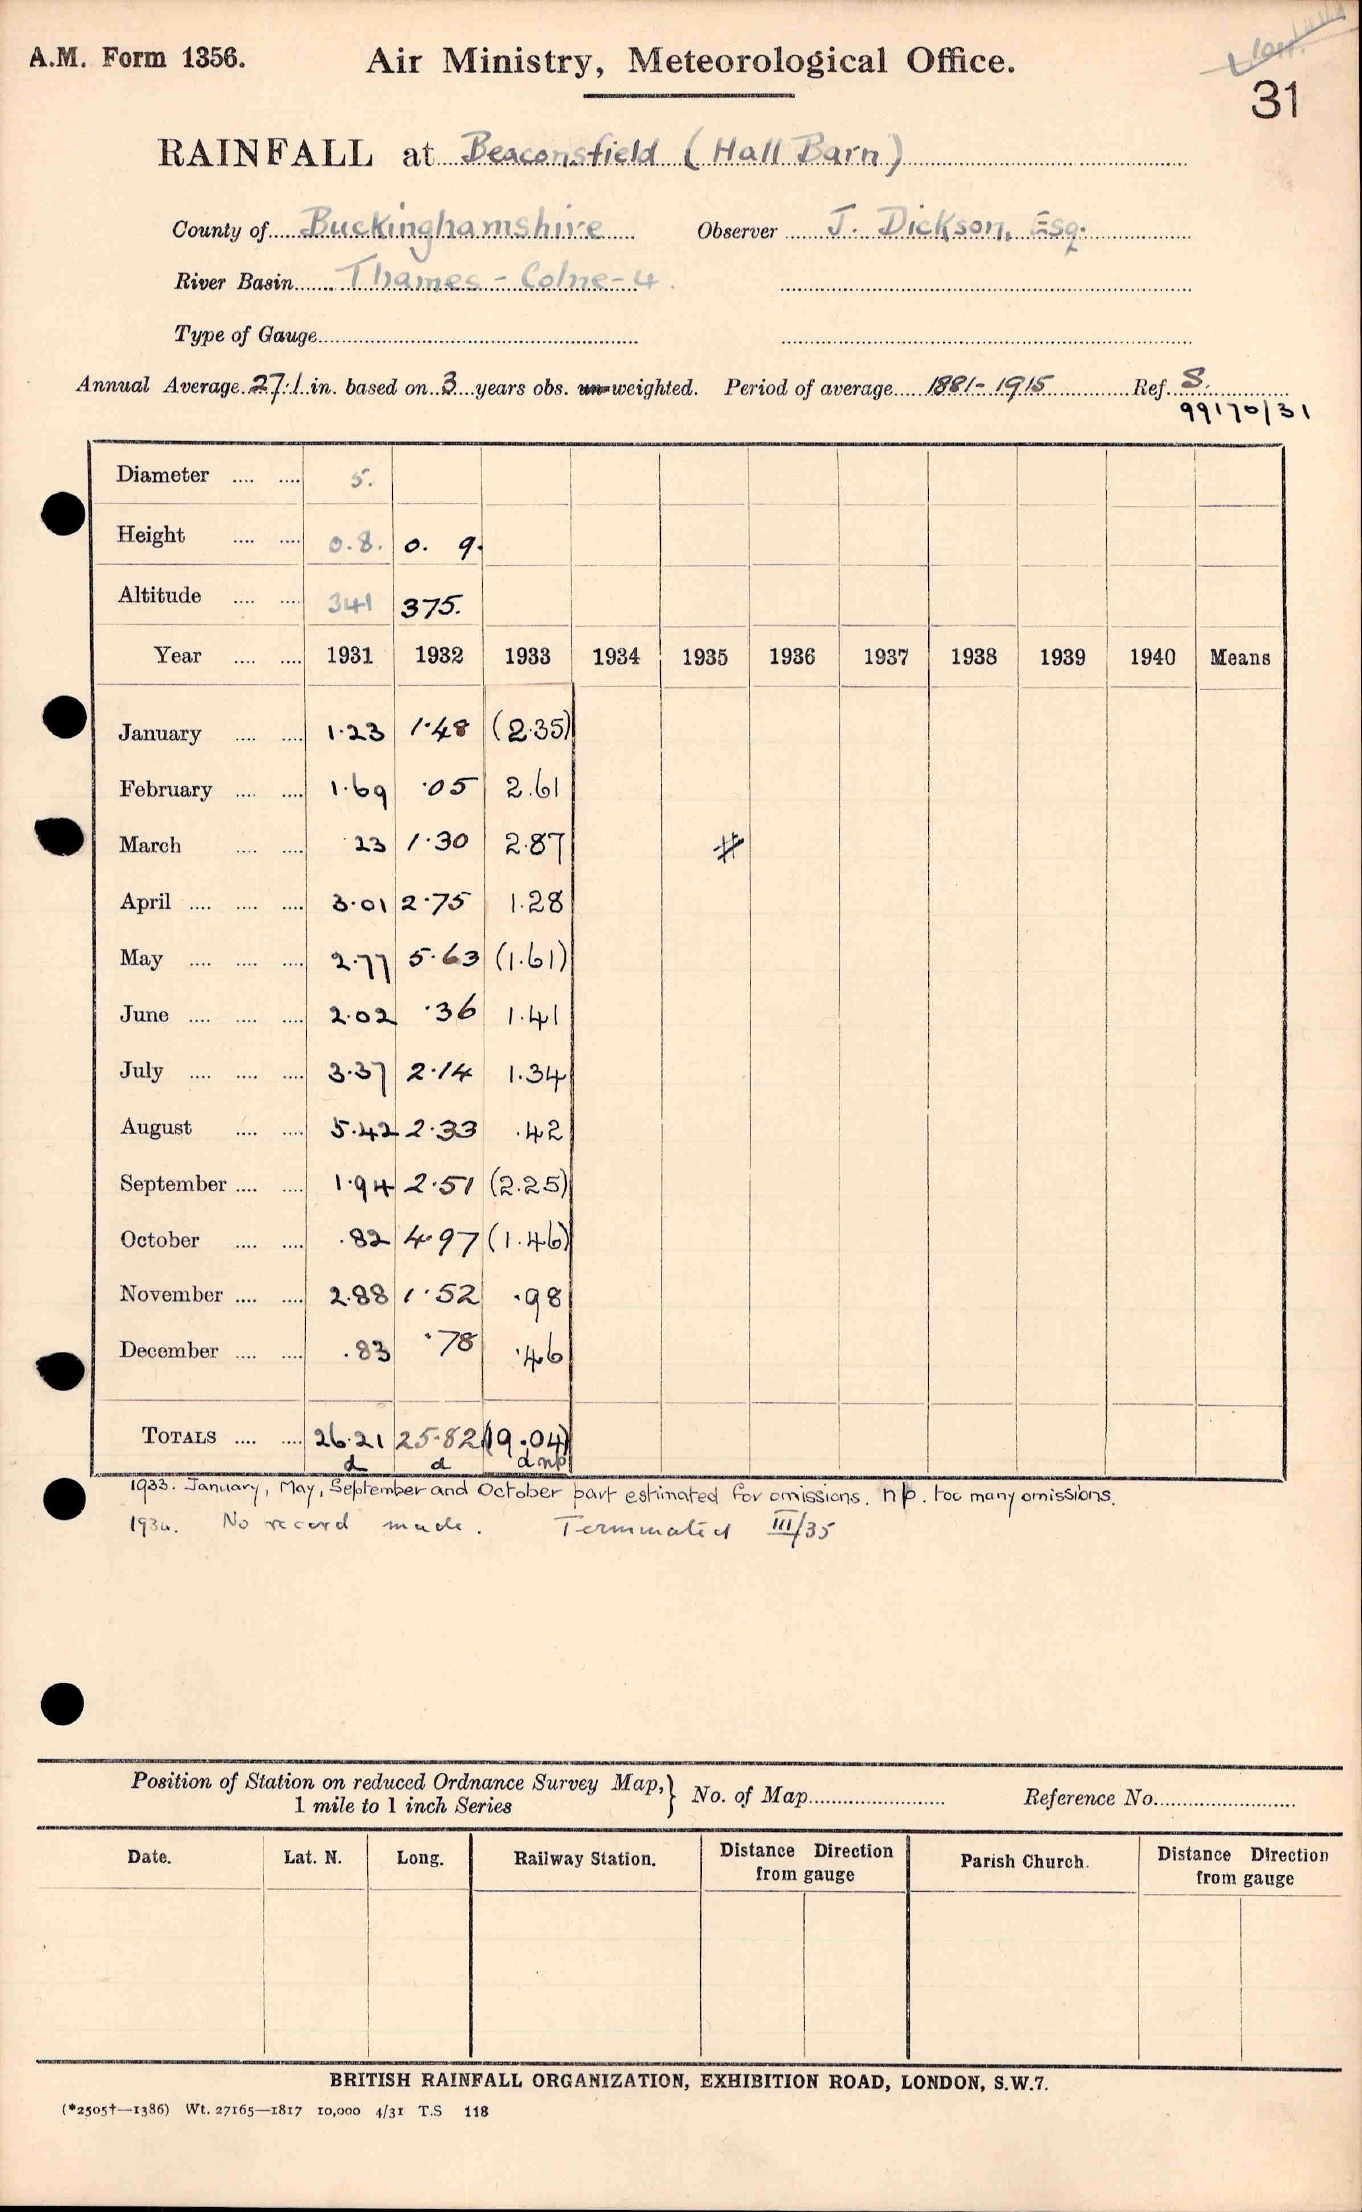 A.M. Form 1356.
Air Ministry, Meteorological Office.
31
RAINFALL at Beaconsfield (Hall Barn)
County of Buckinghamshire Observer J. Dickson, Esq.
River Basin Thames - Colne - 4.
Type of Gauge
Annual Average 27.1 in. based on 3 years obs. un-weighted. Period of average 1881-1915 Ref. S.
99170/31
Diameter .... .... 5.
Height .... .... 0.8. 0. 9.
Altitude .... .... 341 375.
Year .... .... 1931 1932 1933 1934 1935 1936 1937 1938 1939 1940 Means
January .... .... 1.23 1.48 (2.35)
February .... .... 1.69 .05 2.61
March .... .... .23 1.30 2.87 #
April .... .... .... 3.01 2.75 1.28
May .... .... .... 2.77 5.63 (1.61)
June .... .... .... 2.02 .36 1.41
July .... .... .... 3.37 2.14 1.34
August .... .... 5.42 2.33 .42
September .... .... 1.94 2.51 (2.25)
October .... .... .82 4.97 (1.46)
November .... .... 2.88 1.52 .98
December .... .... .83 .78 .46
TOTALS .... .... 26.21 25.82 (19.04)
d d d np
1933. January, May, September and October part estimated for omissions. np. too many omissions.
1934. No record made. Terminated III/35
Position of Station on reduced Ordnance Survey Map,} No. of Map Reference No.
1 mile to 1 inch Series
Date. Lat. N. Long. Railway Station. Distance Direction from gauge Parish Church. Distance Direction from gauge
BRITISH RAINFALL ORGANIZATION, EXHIBITION ROAD, LONDON, S.W.7.
(*2505†—1386) Wt. 27165—1817 10,000 4/31 T.S 118